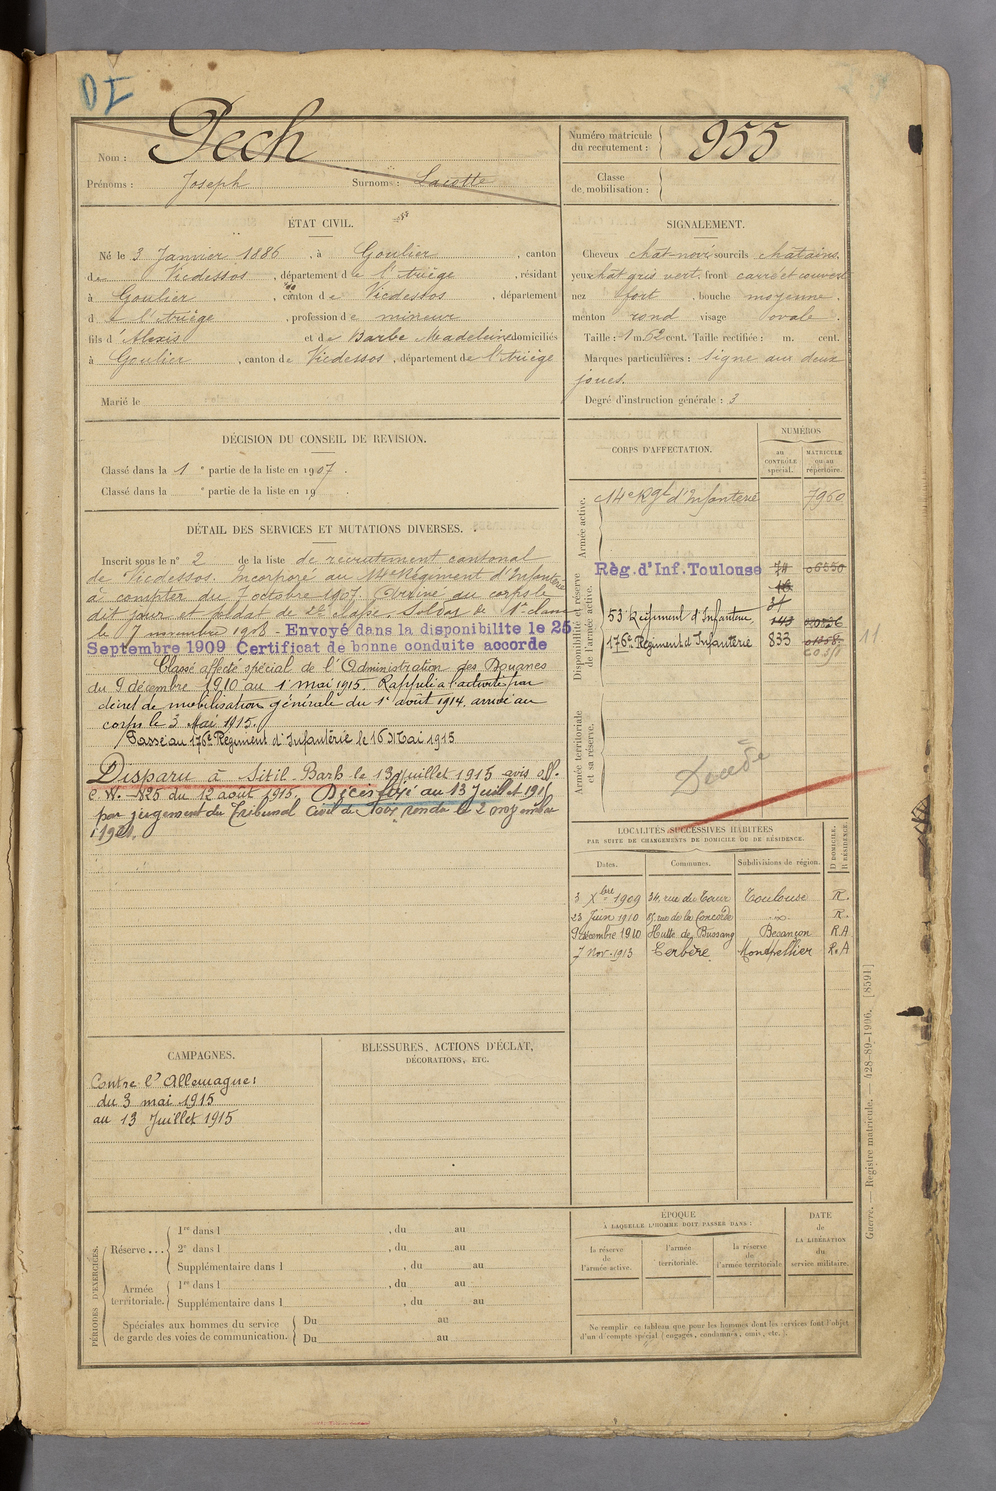 DI
Nom : Pech
Numéro matricule du recrutement : 955
Prénoms : Joseph Surnoms : Lacotte
Classe de mobilisation :
ÉTAT CIVIL.
Né le 3 Janvier 1886, à Goulier, canton
de Vicdessos, département de l'Ariège, résidant
à Goulier, canton de Vicdessos, département
d e l'Ariège, profession de mineur
fils d'Alexis et de Barbe Madeleine domiciliés
à Goulier, canton de Vicdessos, département de l'Ariège
Marié le
SIGNALEMENT.
Cheveux chat-noir sourcils châtains.
yeux chat gris vert, front carré et couvert
nez fort, bouche moyenne,
menton rond visage ovale.
Taille : 1 m. 62 cent. Taille rectifiée : m. cent.
Marques particulières : signe aux deux
joues.
Degré d'instruction générale : 3
DÉCISION DU CONSEIL DE REVISION.
Classé dans la 1e partie de la liste en 1907.
Classé dans la e partie de la liste en 19 .
DÉTAIL DES SERVICES ET MUTATIONS DIVERSES.
Inscrit sous le n° 2 de la liste de recrutement cantonal
de Vicdessos. Incorporé au 14e Régiment d'Infanterie
à compter du 7 octobre 1907. Arrivé au corps le
dit jour et soldat de 2e classe. Soldat de 1e classe
le 7 novembre 1908 - Envoyé dans la disponibilite le 25
Septembre 1909 Certificat de bonne conduite accorde
Classé affecté spécial de l'Administration des Douanes
du 9 décembre 1910 au 1er mai 1915. Rappelé à l'activité par
décret de mobilisation générale du 1er août 1914, arrivé au
corps le 3 Mai 1915.
Passé au 176e Régiment d'Infanterie le 16 Mai 1915
Disparu à Sitil-Barh le 13 Juillet 1915 avis off.
C. W. 825 du 12 août 1915. Décès fixé au 13 Juillet 1915
par jugement du Tribunal Civil de Foix rendu le 2 novembre
1920.
CORPS D'AFFECTATION.
NUMÉROS
au CONTRÔLE spécial.
MATRICULE ou au répertoire.
Armée active.
14e Rgt d'Infanterie 7960
Disponibilité et réserve de l'armée active.
Règ. d'Inf. Toulouse
53e Régiment d'Infanterie
176e Régiment d'Infanterie 833
11
Armée territoriale et sa réserve.
Décédé
LOCALITÉS SUCCESSIVES HABITÉES
PAR SUITE DE CHANGEMENTS DE DOMICILE OU DE RÉSIDENCE.
Dates. Communes. Subdivisions de région. D DOMICILE. R RÉSIDENCE
3 Xbre 1909 34, rue du Taur Toulouse R.
23 Juin 1910 85, rue de la Concorde -"- R.
9 décembre 1910 Hutte de Bussang Besançon R.A
7 Nov. 1913 Cerbère Montpellier R.A
CAMPAGNES.
Contre l'Allemagne :
du 3 mai 1915
au 13 Juillet 1915
BLESSURES, ACTIONS D'ÉCLAT,
DÉCORATIONS, ETC.
PÉRIODES D'EXERCICES.
Réserve ... 1re dans l , du au
2e dans l , du au
Supplémentaire dans l , du au
Armée territoriale. 1re dans l , du au
Supplémentaire dans l , du au
Spéciales aux hommes du service
de garde des voies de communication. Du au
Du au
EPOQUE
À LAQUELLE L'HOMME DOIT PASSER DANS :
la réserve de l'armée active.
l'armée territoriale.
la réserve de l'armée territoriale
DATE de LA LIBÉRATION du service militaire.
Ne remplir ce tableau que pour les hommes dont les services font l'objet
d'un décompte spécial (engagés, condamnés, omis, etc.).
Guerre. — Registre matricule. 428-89-1906. [8591]